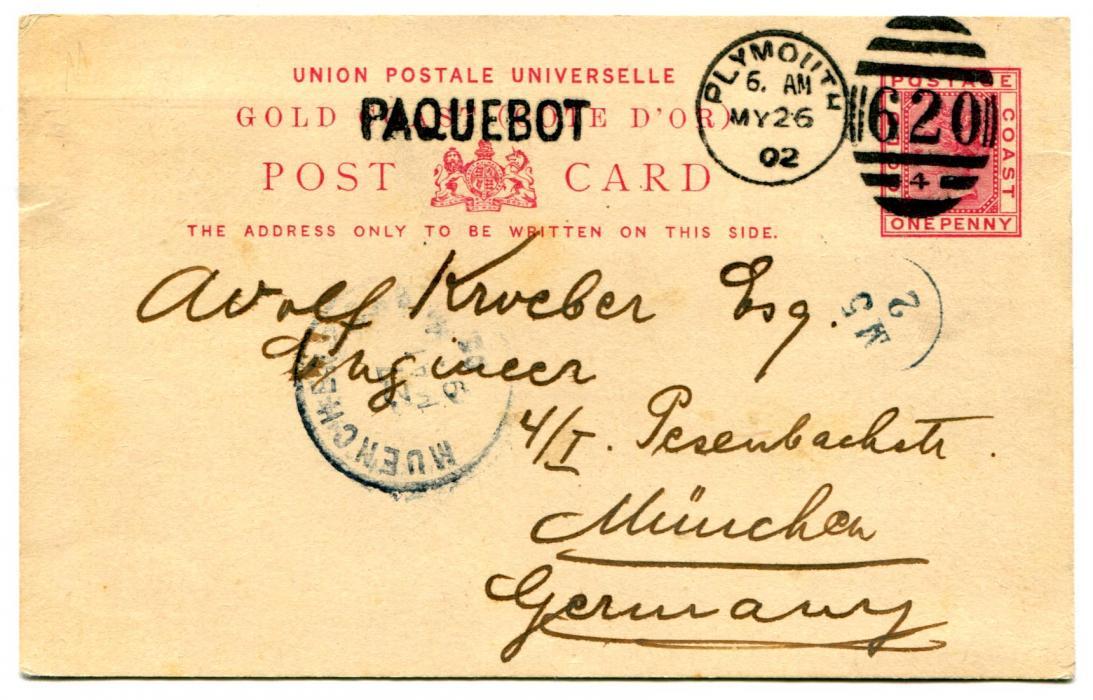 UNION POSTALE UNIVERSELLE
GOLD COAST (COTE D'OR)
PAQUEBOT
POST CARD
THE ADDRESS ONLY TO BE WRITTEN ON THIS SIDE.
PLYMOUTH
6. AM
MY 26
02
620
4
POSTAGE
COAST
ONE PENNY
Adolf Kroeber Esq.
Engineer
4/I. Pesenbachstr.
München
Germany
MUENCHEN